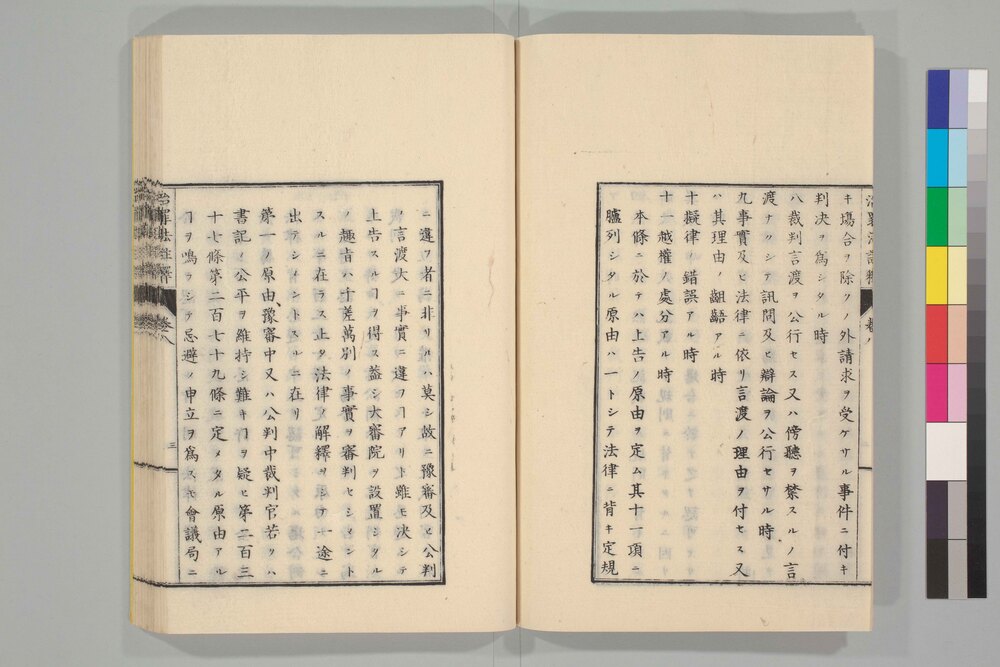 キ塲合ヲ除クノ外請求ヲ受ケサル事件ニ付キ
判决ヲ爲シタル時
八裁判言渡ヲ公行セス又ハ傍聽ヲ禁スルノ言
渡ナクシテ訊問及ヒ辯論ヲ公行セサル時
九事實及ヒ法律ニ依リ言渡ノ理由ヲ付セス又
ハ其理由ノ齟齬アル時
十擬律ノ錯誤アル時
十一越權ノ處分アル時
本條ニ於テハ上告ノ原由ヲ定ム其十一項ニ
臚列シタル原由ハ一トシテ法律ニ背キ定規
ニ違フ者ニ非サルハ莫シ故ニ豫審及ヒ公判
ノ言渡大ニ事實ニ違フヿアリト雖モ决シテ
上告スルヿヲ得ス葢シ大審院ヲ設置シタル
ノ趣旨ハ千差萬別ノ事實ヲ審判セシメント
スルニ在ラス止タ法律ノ解釋ヲ一途ニ
出テシメントスルニ在リ
第一ノ原由、豫審中又ハ公判中裁判官若クハ
書記ノ公平ヲ維持シ難キヿヲ疑ヒ第二百三
十七條第二百七十九條ニ定メタル原由アル
ヿヲ鳴ラシテ忌避ノ申立ヲ爲スモ會議局ニ
治罪法註釋
卷八
三